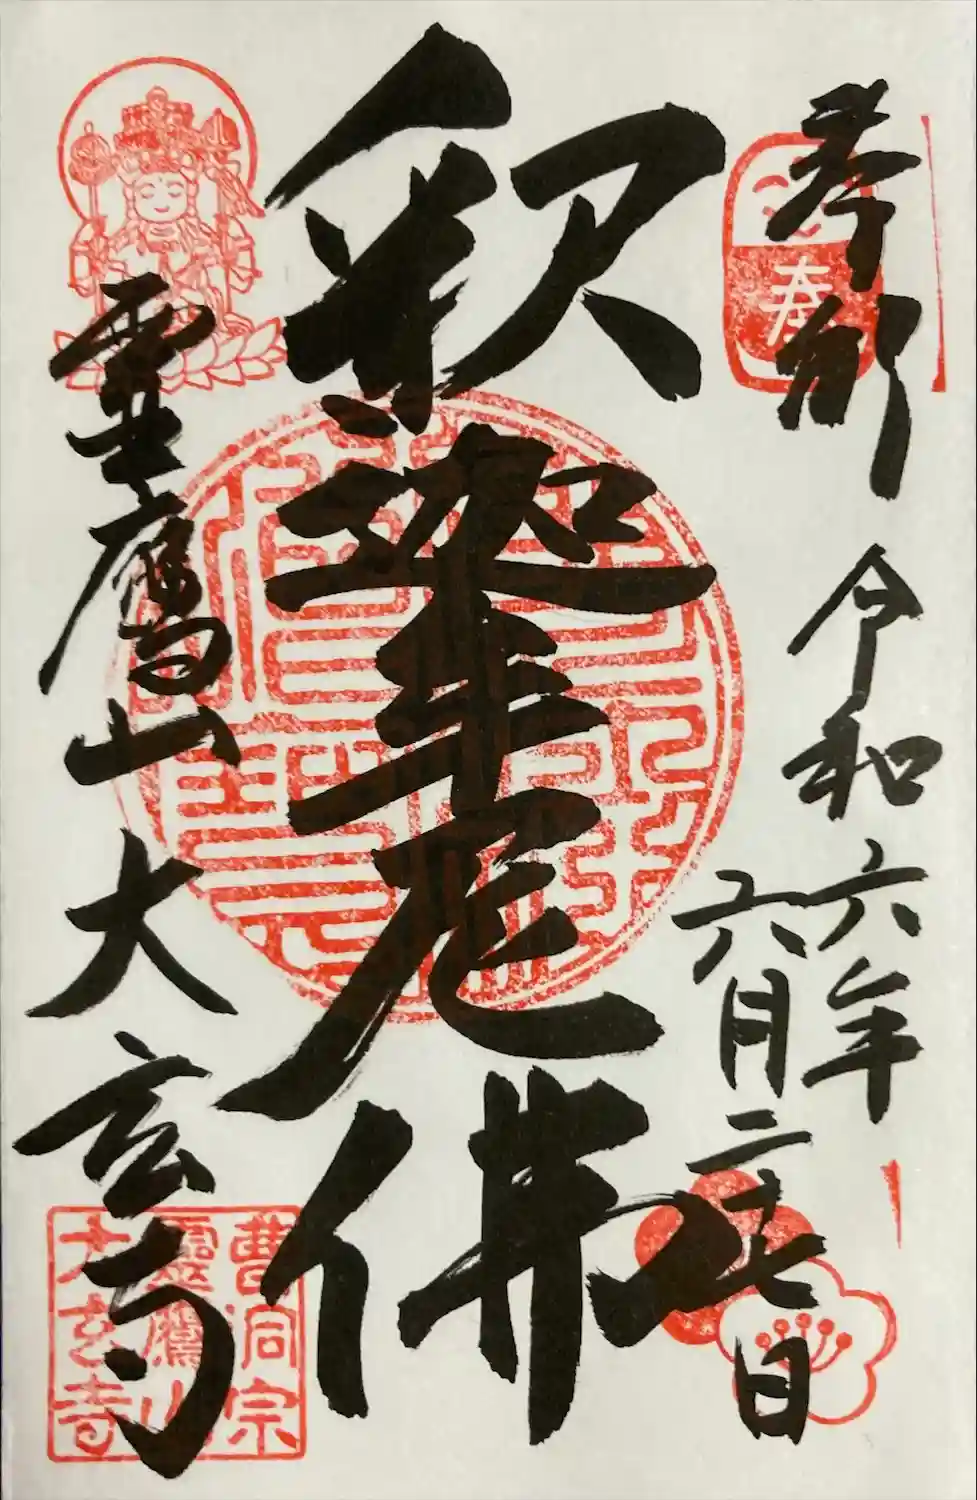 奉拝 令和六年
六月二十七日
釈迦牟尼佛
霊鷹山大玄寺
奉
曹洞宗
霊鷹山
大玄寺